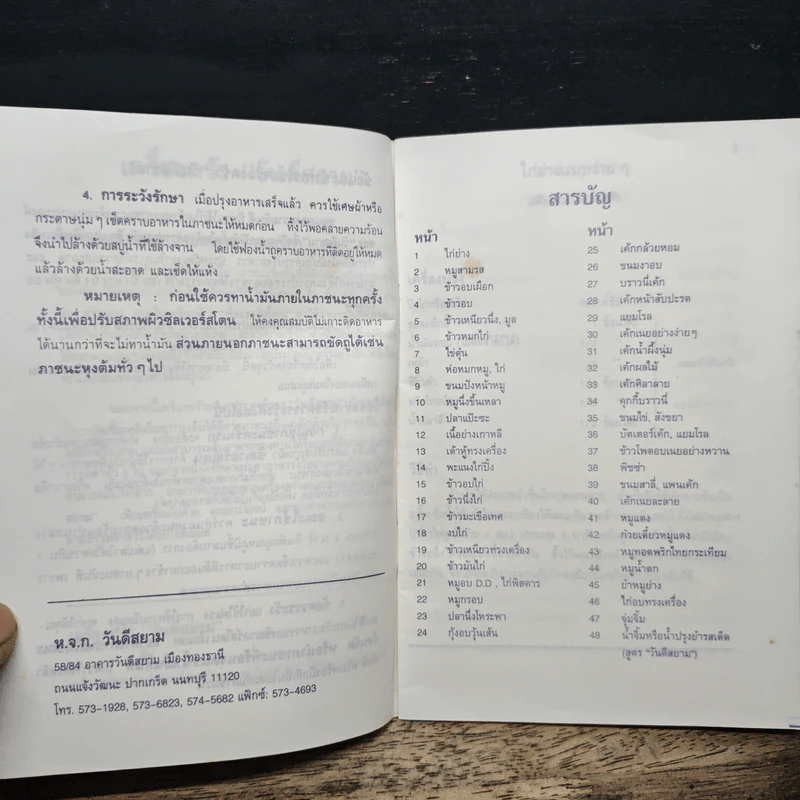 4. การระวังรักษา เมื่อปรุงอาหารเสร็จแล้ว ควรใช้เศษผ้าหรือ
กระดาษนุ่ม ๆ เช็ดคราบอาหารในภาชนะให้หมดก่อน ทิ้งไว้พอคลายความร้อน
จึงนำไปล้างด้วยสบู่น้ำที่ใช้ล้างจาน โดยใช้ฟองน้ำถูคราบอาหารที่ติดอยู่ให้หมด
แล้วล้างด้วยน้ำสะอาด และเช็ดให้แห้ง
หมายเหตุ : ก่อนใช้ควรทาน้ำมันภายในภาชนะทุกครั้ง
ทั้งนี้เพื่อปรับสภาพผิวซิลเวอร์สโตน ให้คงคุณสมบัติไม่เกาะติดอาหาร
ได้นานกว่าที่จะไม่ทาน้ำมัน ส่วนภายนอกภาชนะสามารถขัดถูได้เช่น
ภาชนะหุงต้มทั่ว ๆ ไป
ห.จ.ก. วันดีสยาม
58/84 อาคารวันดีสยาม เมืองทองธานี
ถนนแจ้งวัฒนะ ปากเกร็ด นนทบุรี 11120
โทร. 573-1928, 573-6823, 574-5682 แฟ็กซ์: 573-4693
สารบัญ
หน้า
1 ไก่ย่าง
2 หมูสามรส
3 ข้าวอบเผือก
4 ข้าวอบ
5 ข้าวเหนียวนึ่ง, มูล
6 ข้าวหมกไก่
7 ไข่ตุ๋น
8 ห่อหมกหมู, ไก่
9 ขนมปังหน้าหมู
10 หมูนึ่งขึ้นเหลา
11 ปลาแป๊ะซะ
12 เนื้อย่างเกาหลี
13 เต้าหู้ทรงเครื่อง
14 พะแนงไก่ปิ้ง
15 ข้าวอบไก่
16 ข้าวนึ่งไก่
17 ข้าวมะเขือเทศ
18 งบไก่
19 ข้าวเหนียวทรงเครื่อง
20 ข้าวมันไก่
21 หมูอบ D.D , ไก่พิสดาร
22 หมูกรอบ
23 ปลานึ่งโหระพา
24 กุ้งอบวุ้นเส้น
หน้า
25 เค้กกล้วยหอม
26 ขนมงาอบ
27 บราวนี่เค้ก
28 เค้กหน้าสับปะรด
29 แยมโรล
30 เค้กเนยอย่างง่ายๆ
31 เค้กน้ำผึ้งนุ่ม
32 เค้กผลไม้
33 เค้กศิลาลาย
34 คุกกี้บราวนี่
35 ขนมไข่, สังขยา
36 บัตเตอร์เค้ก, แยมโรล
37 ข้าวโพดอบเนยอย่างหวาน
38 พิซซ่า
39 ขนมสาลี่, แพนเค้ก
40 เค้กเนยละลาย
41 หมูแดง
42 ก๋วยเตี๋ยวหมูแดง
43 หมูทอดพริกไทยกระเทียม
44 หมูน้ำตก
45 ยำหมูย่าง
46 ไก่อบทรงเครื่อง
47 จุ่มจิ้ม
48 น้ำจิ้มหรือน้ำปรุงยำรสเด็ด
(สูตร "วันดีสยาม")